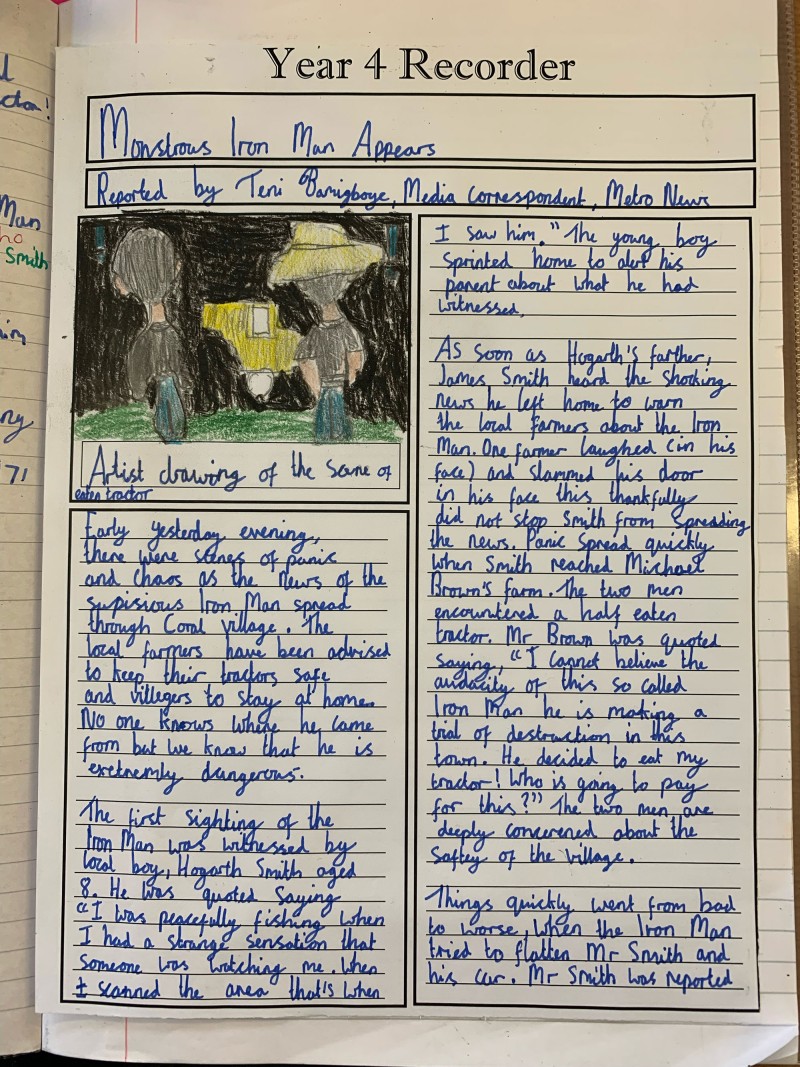 Year 4 Recorder
Monstrous Iron Man Appears
Reported by Teni Bamigboye, Media correspondent, Metro News
Artist drawing of the scene of
eaten tractor
Early yesterday evening,
there were scenes of panic
and chaos as the News of the
supisious Iron Man spread
through Coral village. The
local farmers have been advised
to keep their tractors safe
and villegers to stay at home.
No one knows where he came
from but we know that he is
exetremly dangerous.
The first sighting of the
Iron Man was witnessed by
local boy, Hogarth Smith aged
8. He was quoted saying
"I was peacefully fishing when
I had a strange sensation that
someone was watching me. When
I scanned the area that's when
I saw him." The young boy
sprinted home to alert his
parent about what he had
witnessed.
As soon as Hogarth's farther,
James Smith heard the shocking
news he left home to warn
the local farmers about the Iron
Man. One farmer laughed (in his
face) and slammed his door
in his face this thankfully
did not stop Smith from spreading
the news. Panic spread quickly
when Smith reached Michael
Brown's farm. The two men
encountered a half eaten
tractor. Mr Brown was quoted
saying, "I cannot believe the
audacity of this so called
Iron Man he is making a
trial of destruction in this
town. He decided to eat my
tractor! Who is going to pay
for this?" The two men are
deeply concerened about the
saftey of the village.
Things quickly went from bad
to worse, when the Iron Man
tried to flatten Mr Smith and
his car. Mr Smith was reported
Man
Smith